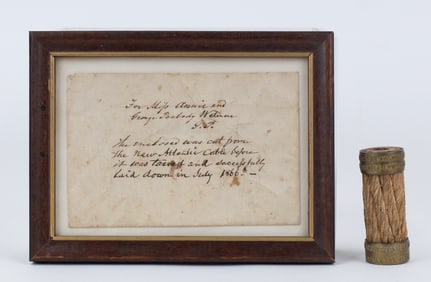 For Miss Annie and
George Peabody Wetmore
G.P.
The enclosed was cut from
the New Atlantic Cable before
it was and successfully
laid down in July 1866 —